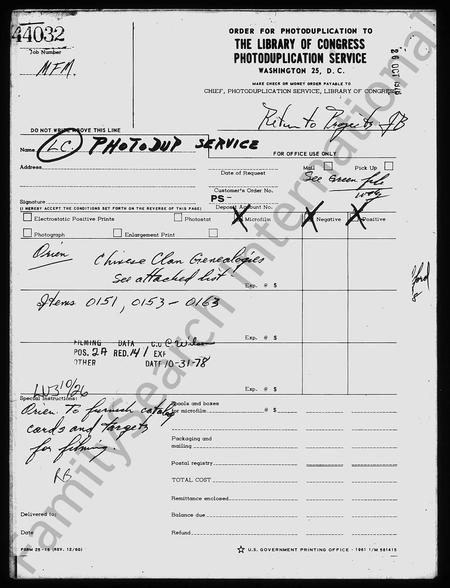 44032
Job Number
MFM.
ORDER FOR PHOTODUPLICATION TO
THE LIBRARY OF CONGRESS
PHOTODUPLICATION SERVICE
WASHINGTON 25, D. C.
MAKE CHECK OR MONEY ORDER PAYABLE TO
CHIEF, PHOTODUPLICATION SERVICE, LIBRARY OF CONGRESS
Return to Projects - JB
DO NOT WRITE ABOVE THIS LINE
Name LC PHOTODUP SERVICE
FOR OFFICE USE ONLY
Address
Date of Request
Mail Pick Up
See Green file
Customer's Order No.
PS-
Signature
Deposit Account No.
(I HEREBY ACCEPT THE CONDITIONS SET FORTH ON THE REVERSE OF THIS PAGE)
Electrostatic Positive Prints Photostat Microfilm Negative Positive
Photograph Enlargement Print
Orien Chinese Clan Genealogies
See attached list
Exp. # $
Items 0151, 0153-0163
Exp. # $
FILMING DATA C.O C Wilson
POS. 2A RED. 14/1 EXP
OTHER DATE 10-31-78
10/26
Exp. # $
Special Instructions:
Orien. To furnish catalog
cards and targets
for filming.
RB
Spools and boxes
for microfilm # $
Packaging and
mailing
Postal registry
TOTAL COST
Remittance enclosed
Delivered to:
Balance due
Date
Refund
FORM 25-16 (REV. 12/60)
☆ U.S. GOVERNMENT PRINTING OFFICE - 1961 /M 581415
FamilySearch International